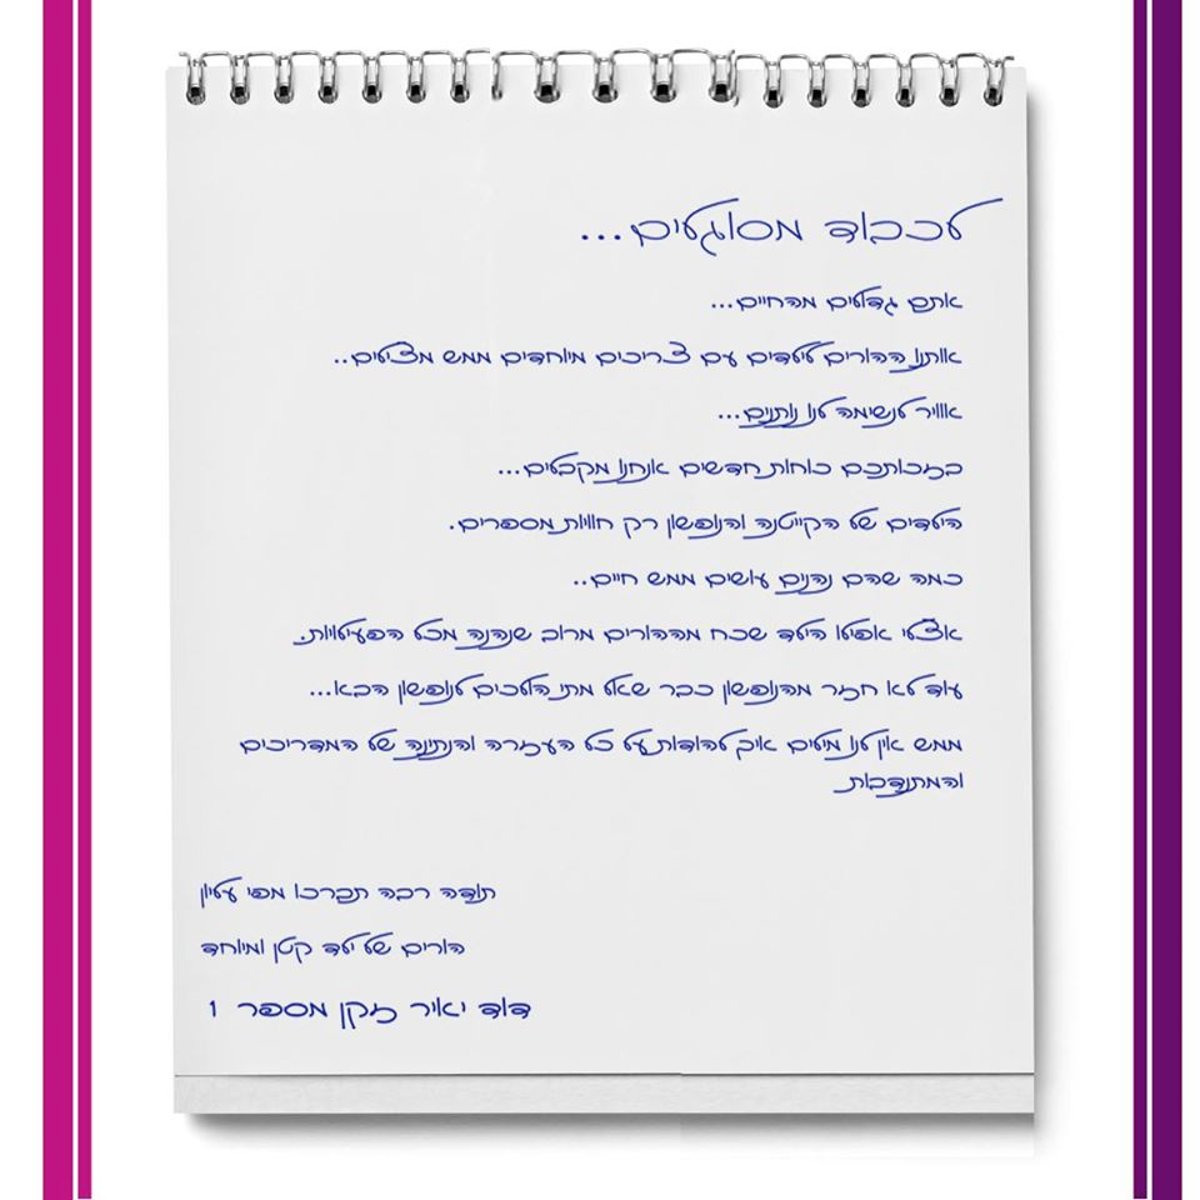 לכבוד מסוגלים...
אתם גדולים מהחיים...
אותנו ההורים לילדים עם צריכים מיוחדים ממש מצילים..
אוויר לנשימה לנו נותנים...
בזכותכם כוחות חדשים אנחנו מקבלים...
הילדים של הקייטנה והנופשון רק חוויות מספרים.
כמה שהם נהנים עושים ממש חיים..
אצלי אפילו הילד שכח מההורים מרוב שנהנה מכל הפעילויות.
עוד לא חזר מהנופשון כבר שאל מתי הולכים לנופשון הבא...
ממש אין לנו מילים איך להודות על כל העזרה והנתינה של המדריכים
והמתנדבות
תודה רבה תבורכו מפי עליון
הורים של ילד קטן ומיוחד
דוד יאיר זקן מספר 1